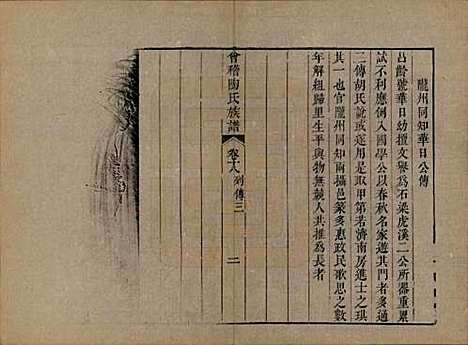 隴州同知華日公傳
占齡號華日幼擅文譽為石梁虎溪二公所器重累
試不利應例入國學公以春秋名家遊其門者多通
二傳胡氏說或遂用是取甲第若濟南房進士之琪
其一也官隴州同知兩攝邑篆多惠政民歌思之數
年解組歸里生平與物無競人共推為長者
會稽陶氏族譜
卷十八列傳三
二